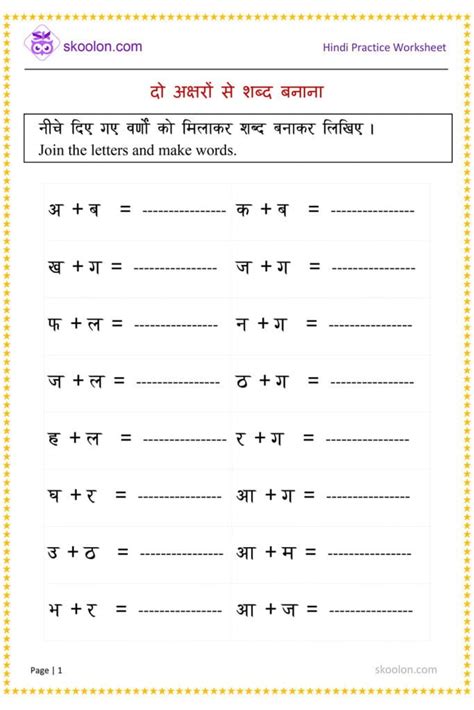 skoolon.com
Hindi Practice Worksheet
दो अक्षरों से शब्द बनाना
नीचे दिए गए वर्णों को मिलाकर शब्द बनाकर लिखिए ।
Join the letters and make words.
अ + ब = ---------------- क + ब = ----------------
ख + ग = ---------------- ज + ग = ----------------
फ + ल = ---------------- न + ग = ----------------
ज + ल = ---------------- ठ + ग = ----------------
ह + ल = ---------------- र + ग = ----------------
घ + र = ---------------- आ + ग = ----------------
उ + ठ = ---------------- आ + म = ----------------
भ + र = ---------------- आ + ज = ----------------
Page | 1
skoolon.com